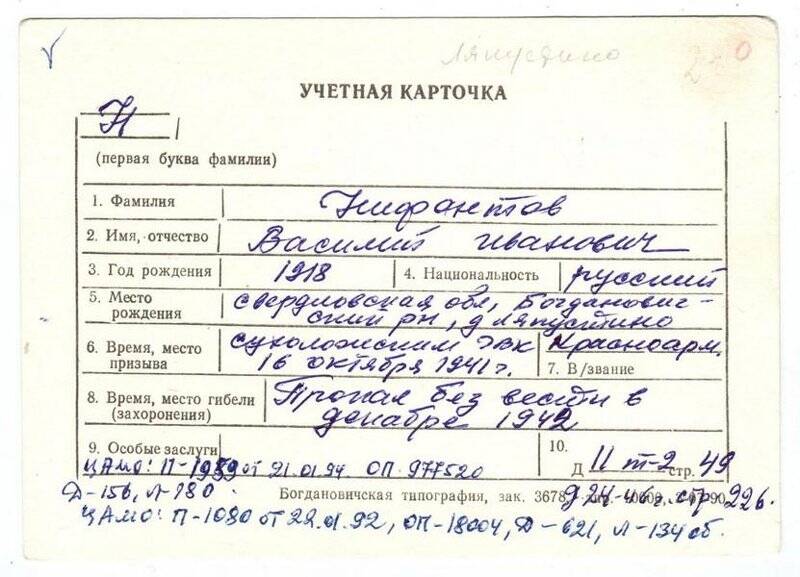 Ляпустино
0
УЧЕТНАЯ КАРТОЧКА
Н
(первая буква фамилии)
1. Фамилия Нифантов
2. Имя, отчество Василий Иванович
3. Год рождения 1918 4. Национальность русский
5. Место рождения Свердловская обл, Богданович-
ский рн, д Ляпустино
6. Время, место призыва Сухоложским РВК
16 октября 1941 г.
Красноарм.
7. В/звание
8. Время, место гибели (захоронения) Пропал без вести в
декабре 1942
9. Особые заслуги
10.
Д 11 т-2 стр. 49
ЦАМО: П-1989 от 21.01.94 ОП. 977520
Д-156, Л-180.
Богдановичская типография, зак. 3678
Д 24. стр. 226.
ЦАМО: П-1080 от 22.01.92, ОП-18004, Д-621, Л-134 об.